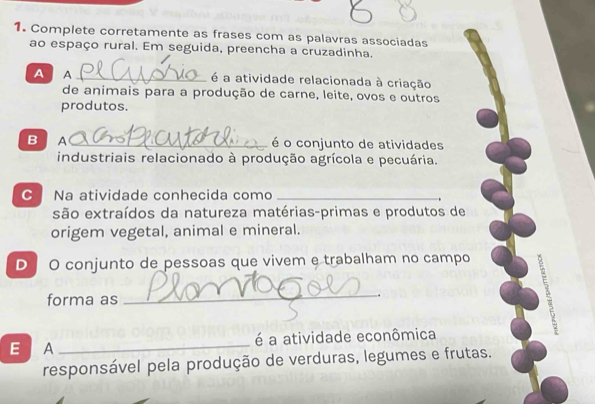 1. Complete corretamente as frases com as palavras associadas
ao espaço rural. Em seguida, preencha a cruzadinha.
A A pecuário é a atividade relacionada à criação
de animais para a produção de carne, leite, ovos e outros
produtos.
B A é o conjunto de atividades
industriais relacionado à produção agrícola e pecuária.
C Na atividade conhecida como ,
são extraídos da natureza matérias-primas e produtos de
origem vegetal, animal e mineral.
D O conjunto de pessoas que vivem e trabalham no campo
forma as Plantações.
E A é a atividade econômica
responsável pela produção de verduras, legumes e frutas.